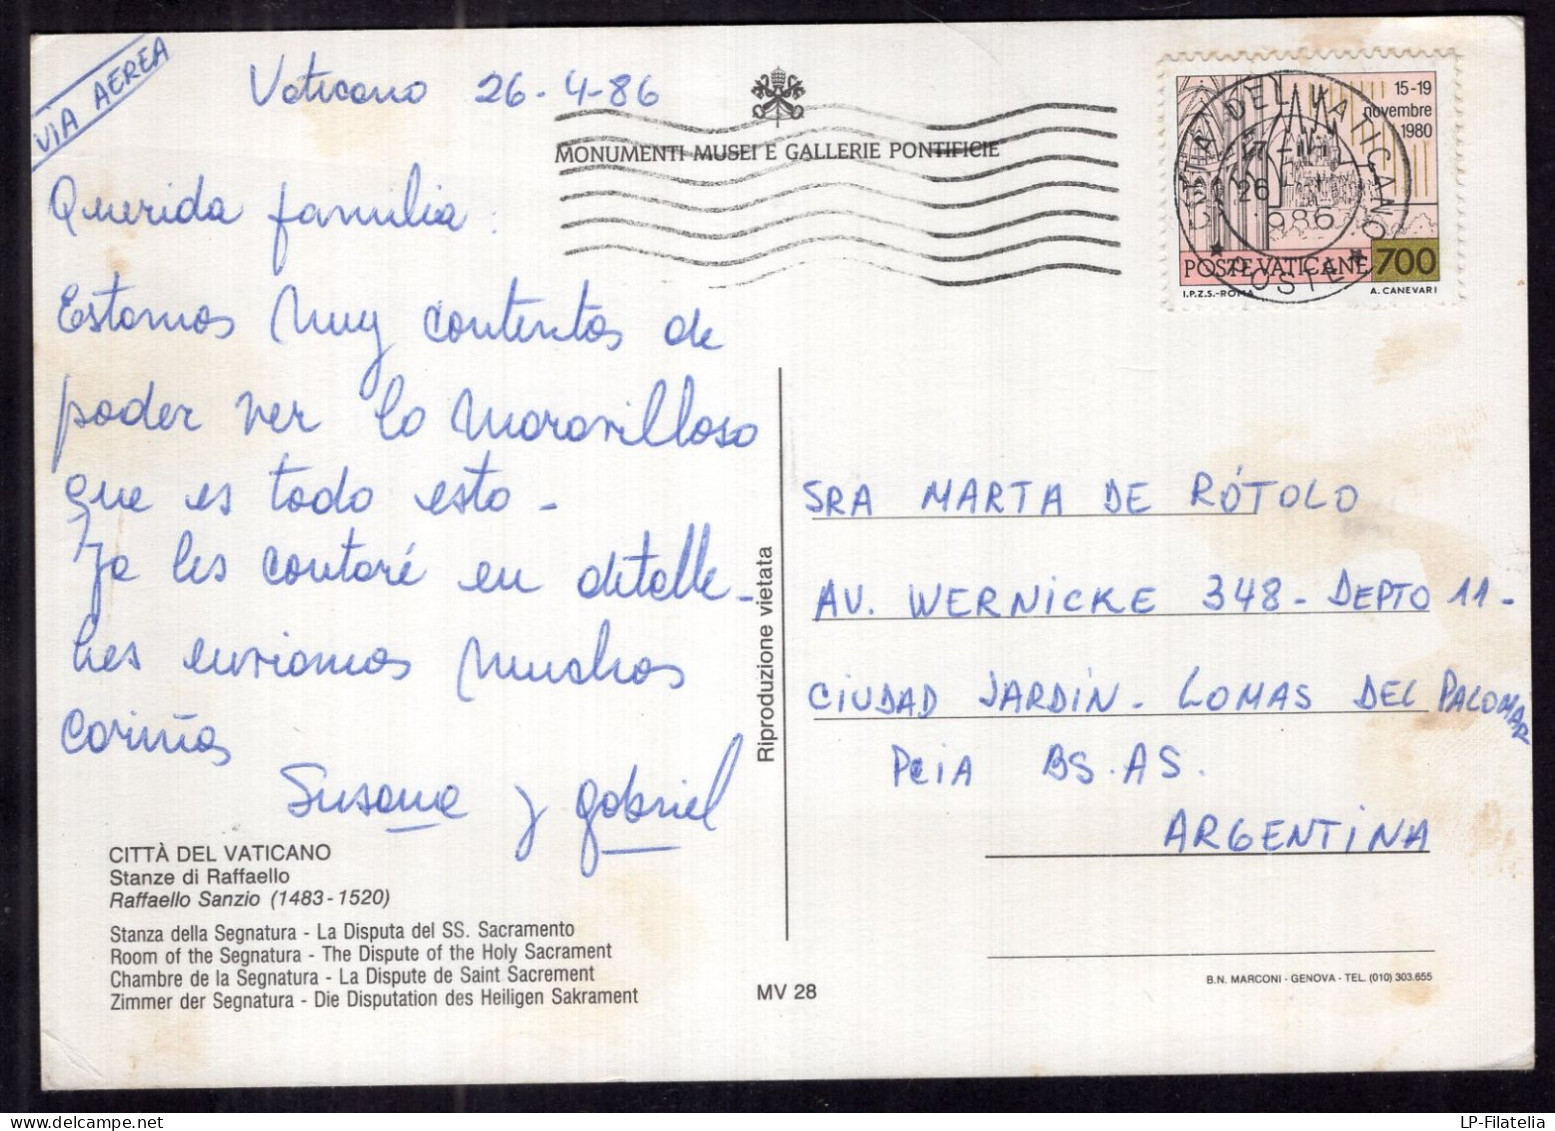 VIA AEREA
Vaticano 26-4-86
MONUMENTI MUSEI E GALLERIE PONTIFICIE
15-19
novembre
1980
CITTA DEL VATICANO
26
1986
POSTE
POSTE VATICANE 700
I.P.Z.S.-ROMA A. CANEVARI
Querida familia:
Estamos muy contentos de
poder ver lo maravilloso
que es todo esto -
Ya les contaré en detalle -
Les enviamos muchos
cariños
Susana y Gabriel
Riproduzione vietata
SRA MARTA DE RÓTOLO
AV. WERNICKE 348 - DEPTO 11 -
CIUDAD JARDÍN - LOMAS DEL PALOMAR
PCIA BS. AS.
ARGENTINA
CITTÀ DEL VATICANO
Stanze di Raffaello
Raffaello Sanzio (1483-1520)
Stanza della Segnatura - La Disputa del SS. Sacramento
Room of the Segnatura - The Dispute of the Holy Sacrament
Chambre de la Segnatura - La Dispute de Saint Sacrement
Zimmer der Segnatura - Die Disputation des Heiligen Sakrament
MV 28
B.N. MARCONI - GENOVA - TEL. (010) 303.655
LP-Filatelia